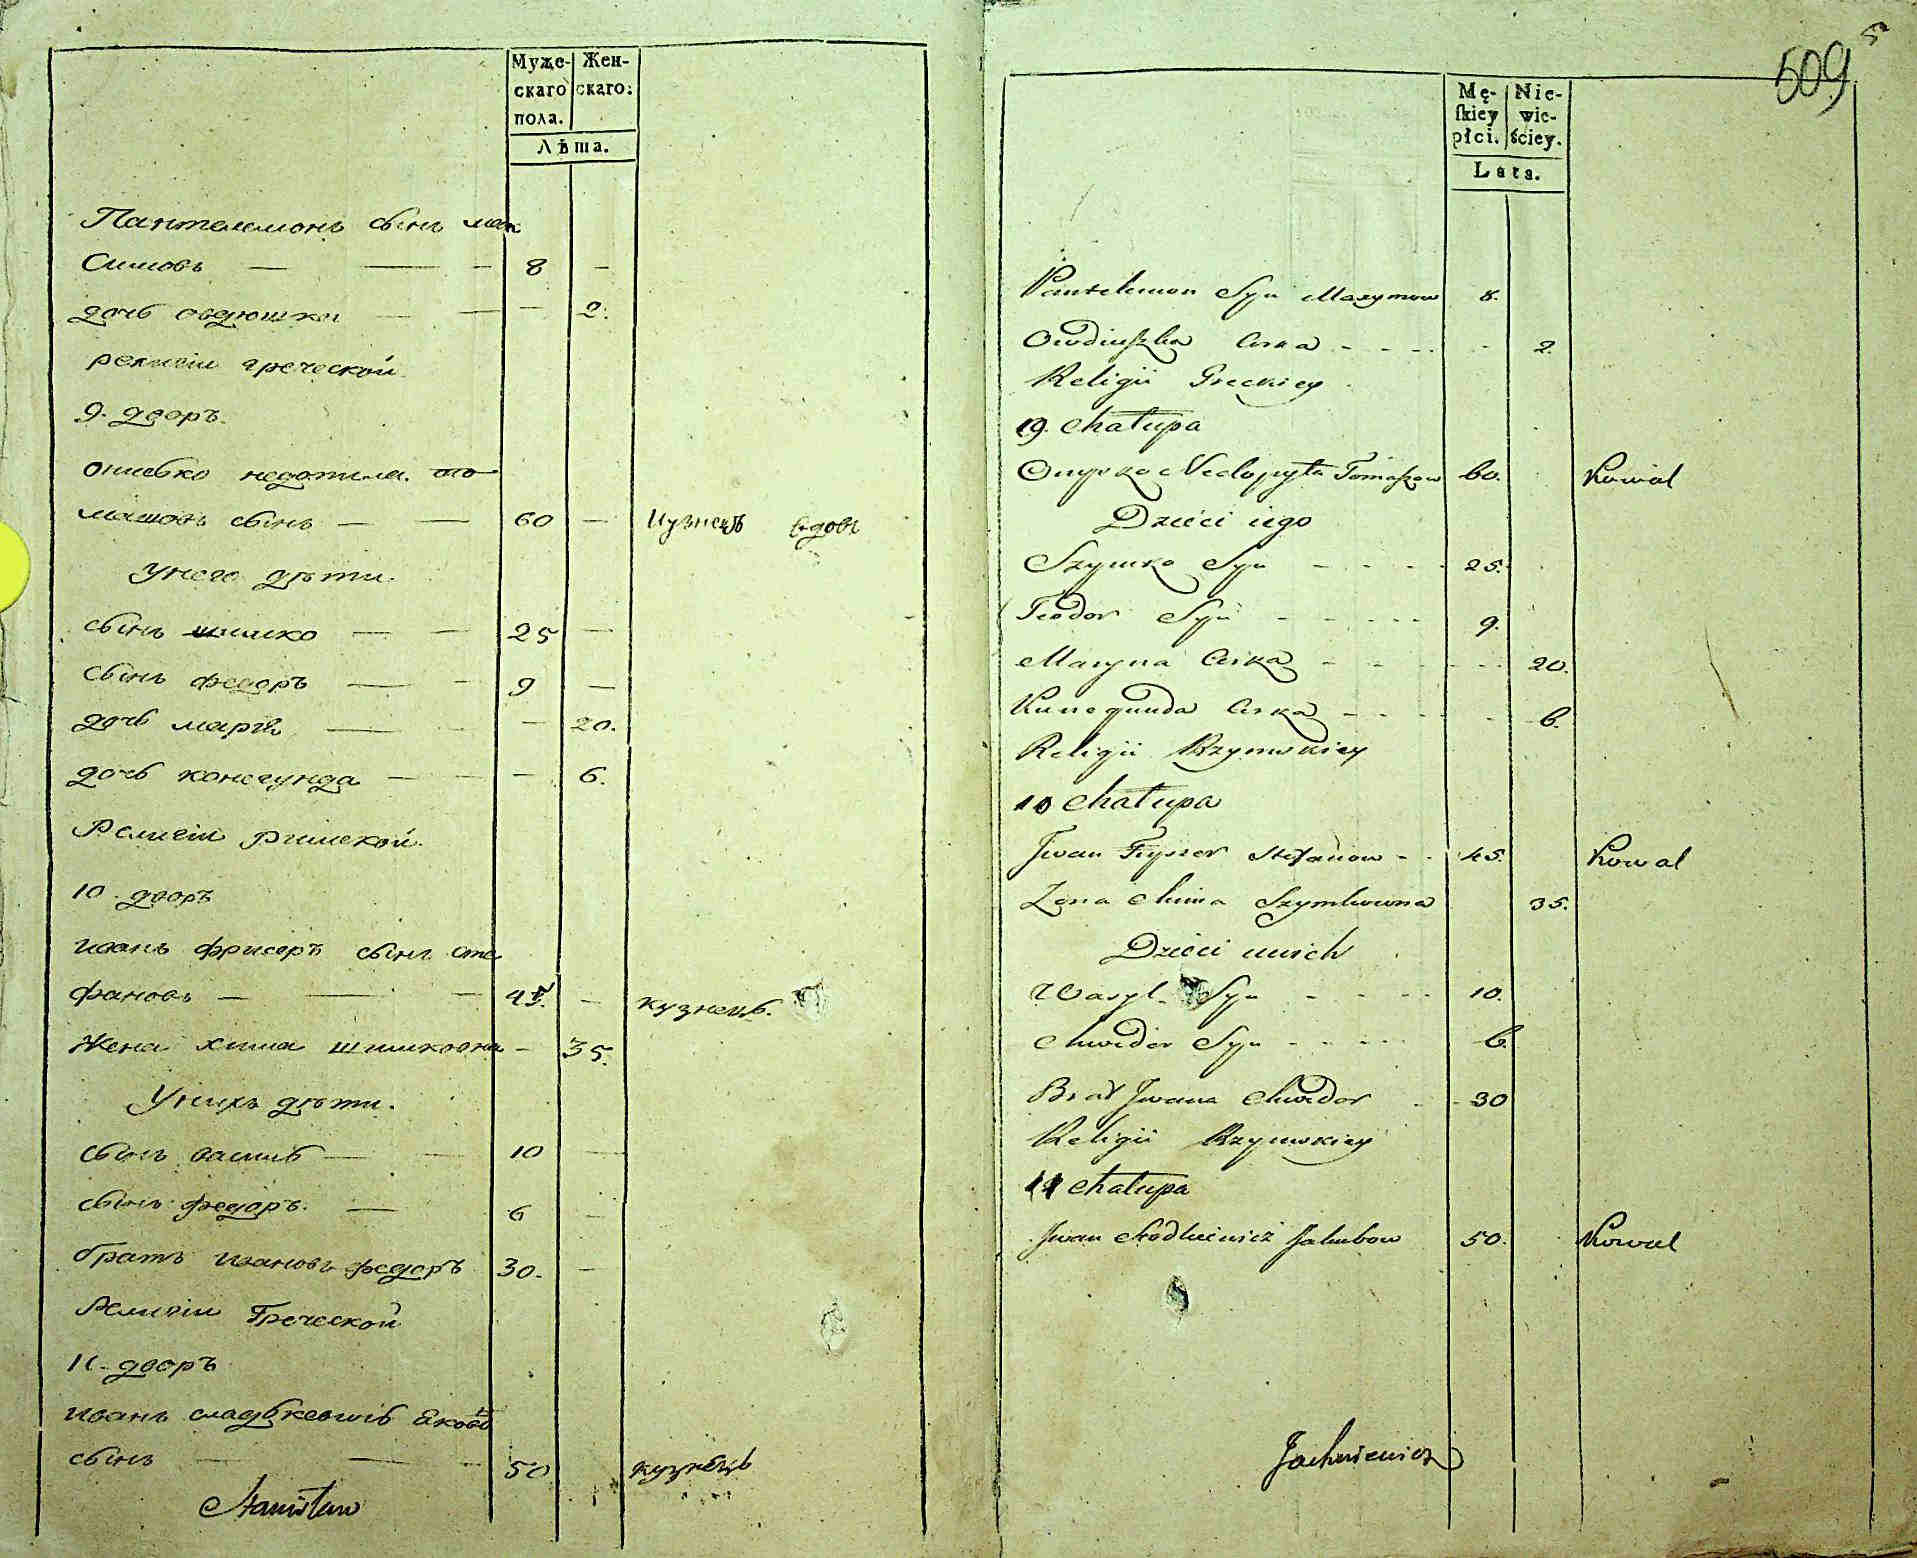 Муже-
скаго
пола.
Жен-
скаго:
Лѣта.
Пантелемонъ сынъ мак
симовъ — — — 8 —
дочь овдюшка — — — 2.
религіи греческой.
9. дворъ.
онисько недопита. то
машовъ сынъ — — 60 — кузнецъ вдовъ
Унего дѣти.
сынъ шимко — — 25 —
сынъ федоръ — — 9 —
дочь марія — — — 20.
дочь конегунда — — — 6.
Религіи римской.
10. дворъ
иванъ фрисеръ сынъ сте
фановъ — — — 45. — кузнецъ.
жена хима шимковна — 35.
Унихъ дѣти.
сынъ василь — — 10 —
сынъ федоръ. — 6 —
братъ ивановъ федоръ 30. —
Религіи Греческой
11. дворъ
иванъ сладькевичь Якововъ
сынъ — — — 50 кузнецъ
Stanisław
509
52
Mę-
ſkiey
płci.
Nie-
wie-
ściey.
Lata.
Pantelemon Syn Maxymow 8.
Owdiuszka Corka - - - - - 2.
Religii Greckiey
9. Chałupa
Onysko Nedopyta Tomaszow 60. Kowal
Dzieci iego
Szymko Syn - - - - 25.
Teodor Syn - - - - - 9.
Maryna Corka - - - - - 20.
Kunegunda Corka - - - - - 6.
Religii Rzymskiey
10 Chałupa
Jwan Fryszer Stefanow - - 45. Kowal
Zona Chima Szymkowna 35.
Dzieci unich
Wasyl Syn - - - - 10.
Chwedor Syn - - - - 6.
Brat Jwana Chwedor - - 30
Religii Rzymskiey
11 Chałupa
Jwan Słodkiewicz Jakubow 50. Kowal
Jachniewicz